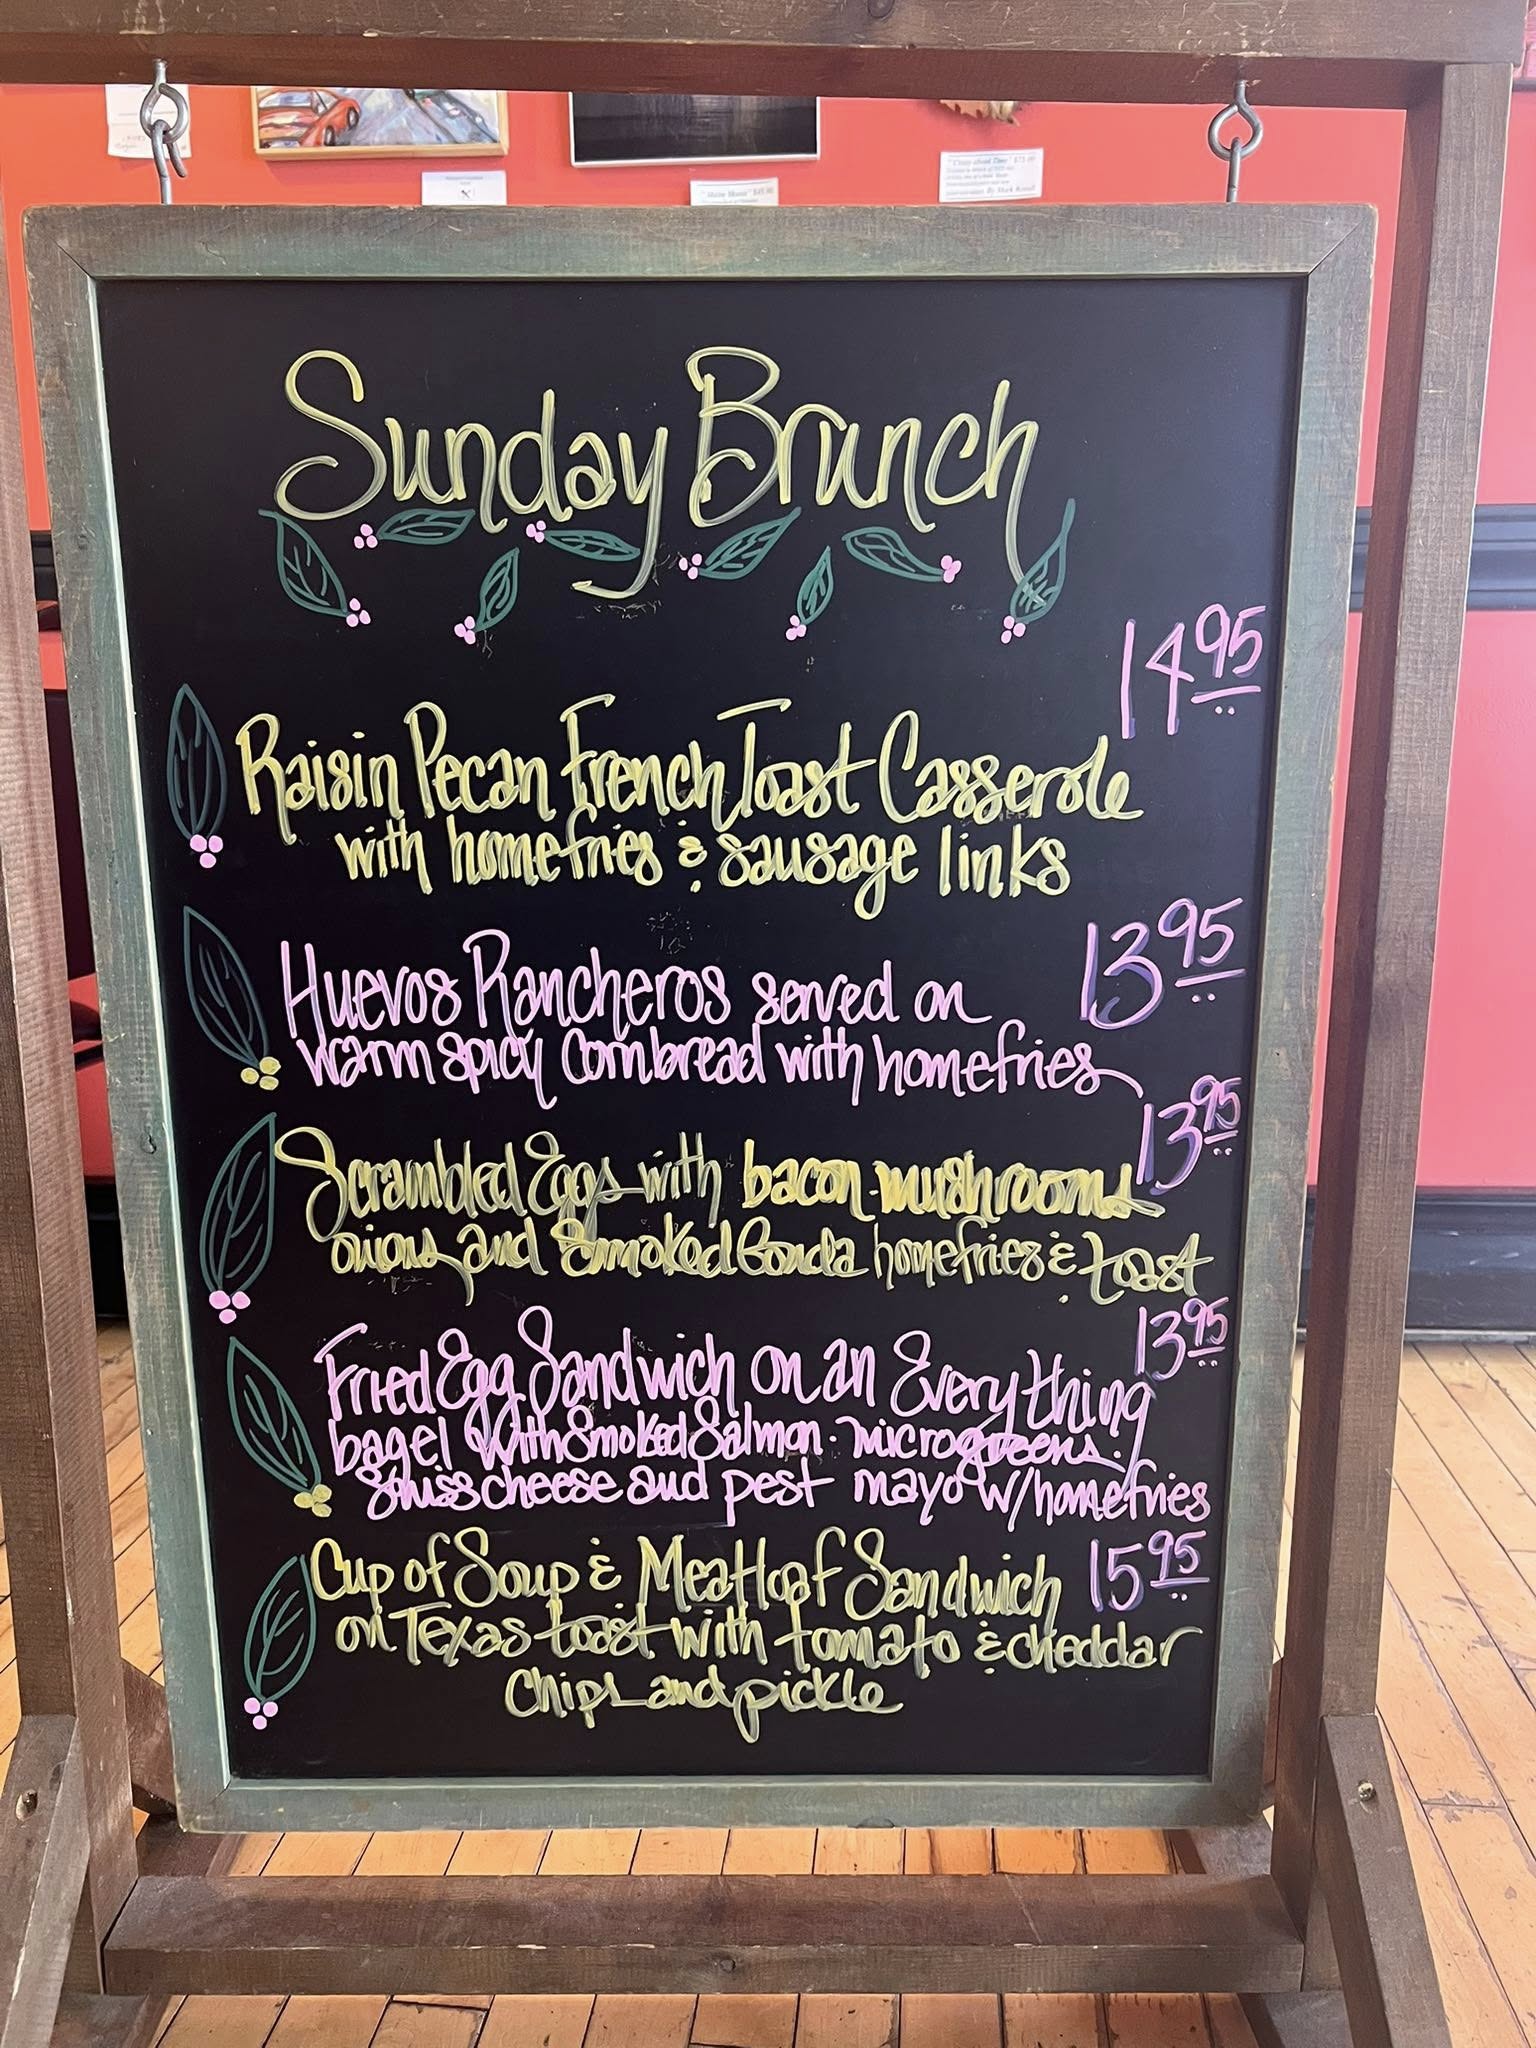 "Maine Moose" $45.00
"Crazy about Time" $75.00
By Mark Russell
Sunday Brunch
14 95
Raisin Pecan French Toast Casserole
with homefries & sausage links
13 95
Huevos Rancheros served on
warm spicy Cornbread with homefries
13 95
Scrambled Eggs with bacon - mushrooms
onions and Smoked Gouda homefries & toast
13 95
Fried Egg Sandwich on an Everything
bagel with Smoked Salmon - microgreens -
Swiss cheese and pest mayo w/homefries
Cup of Soup & Meatloaf Sandwich 15 95
on Texas toast with tomato & cheddar
Chips and pickle